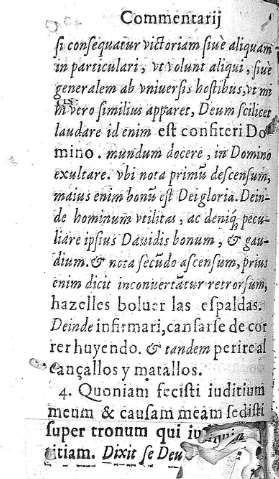 Commentarij
si consequatur victoriam siuè aliquam
in particulari, vt volunt aliqui, siuè
generalem ab vniuersis hostibus, vt mi
hi vero similius apparet, Deum scilicet
laudare id enim est confiteri Do
mino. mundum docere, in Domino
exultare. vbi nota primũ descensum,
maius enim bonũ est Dei gloria. Dein-
de hominum vtilitas, ac deniq; pecu-
liare ipsius Dauidis bonum, & gau-
dium. & nota secũdo ascensum, prius
enim dicit in conuertãtur retrorsum,
hazelles boluer las espaldas.
Deinde infirmari, cansarse de cor
rer huyendo. & tandem perire al
cançallos y matallos.
4. Quoniam fecisti iuditium
meum & causam meam sedisti
super tronum qui
titiam. Dixit se Deu